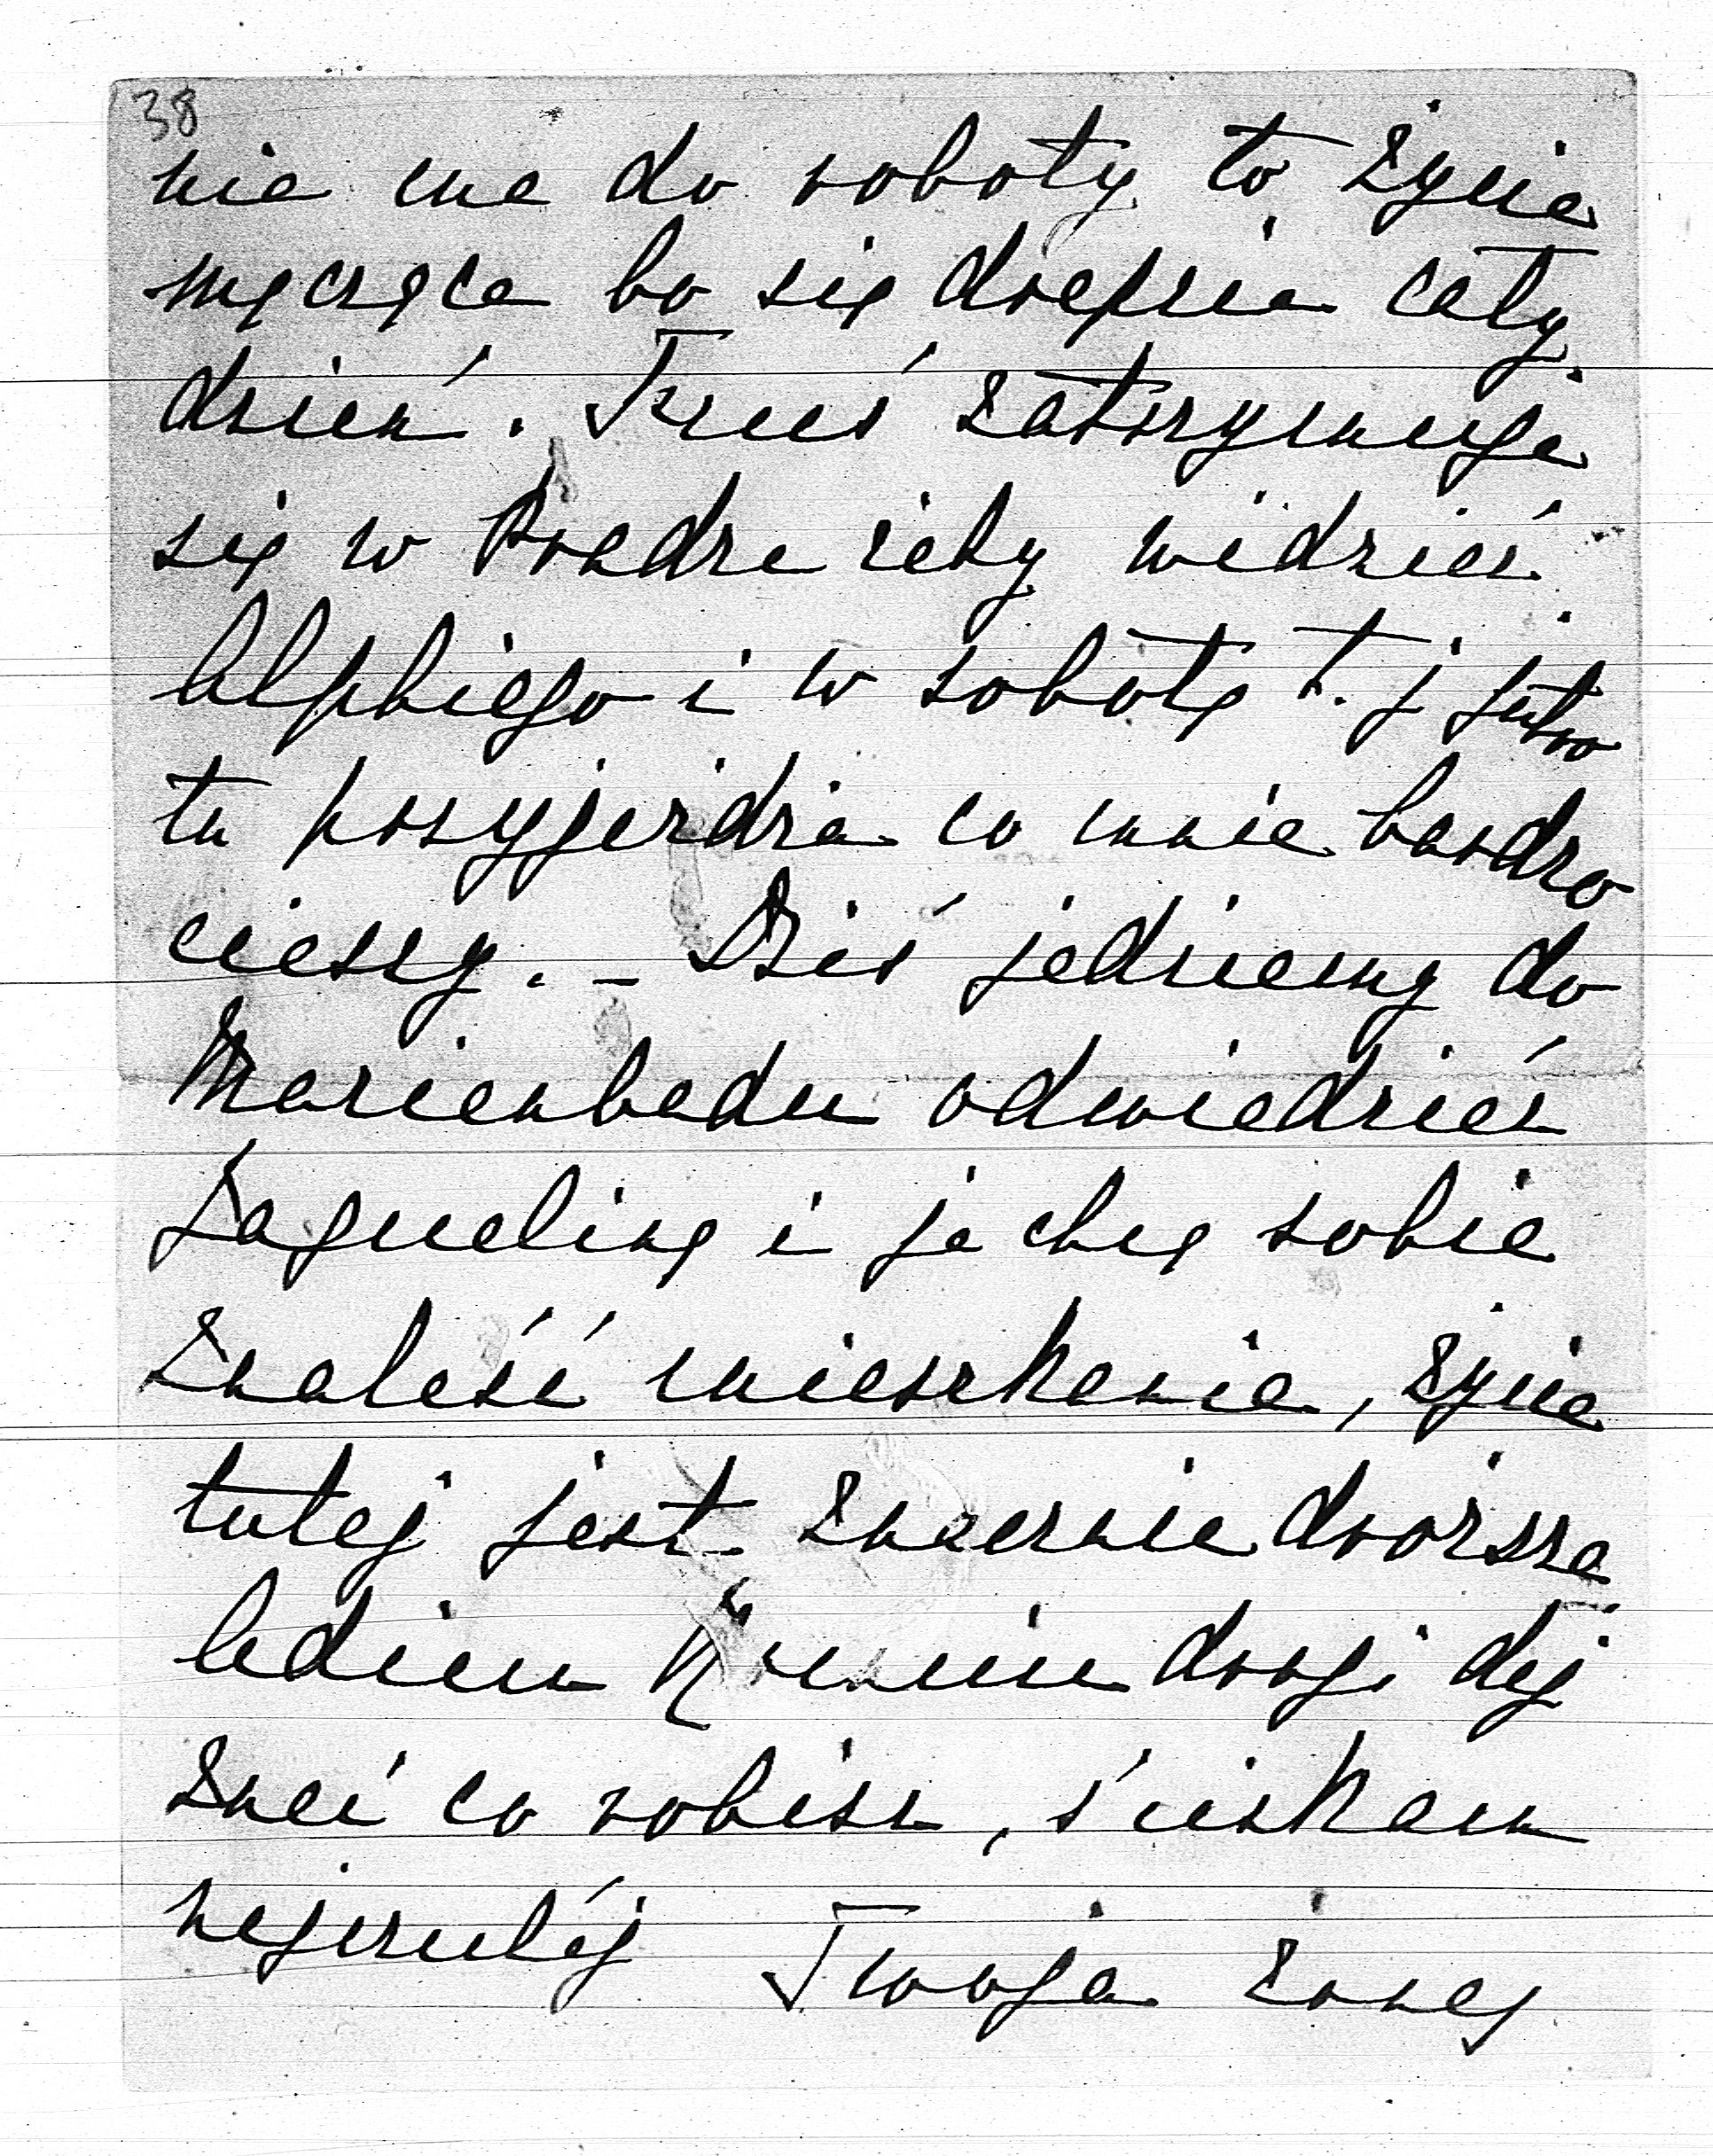 38
nie ma do roboty to życie
męczące bo się drepcze cały
dzień. Truś zatrzymuje
się w Pradze żeby widzieć
Alphiego i w sobotę t. j jutro
tu przyjeżdża co mnie bardzo
cieszy. – Dziś jedziemy do
Marienbadu odwiedzieć
Jaquelinę i ja chcę sobie
znaleść mieszkanie, życie
tutej jest znacznie droższe
Adieu drogi dej
znać co robisz, ściskam
nejczulej Twoja żona